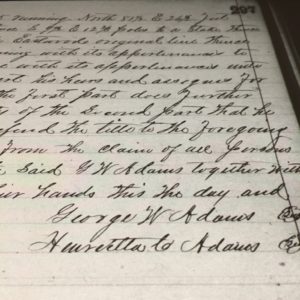 297
running North 81½ E 26¾
E 12¾ poles to a stake thence
Eastward original line thence
with its appertenances to
with its appertenances unto
his heirs and assigns for
the first part does further
of the second part that he
the title to the foregoing
from the claim of all persons
said G W Adams together with
hands this the day and
George W Adams
Henrietta to Adams